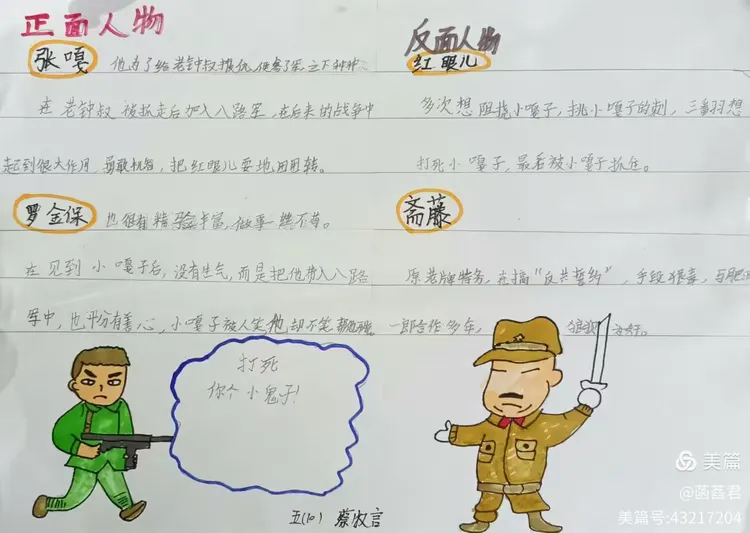 正面人物
张嘎
他为了给老钟叔报仇,使尽了
在老钟叔被抓走后加入八路军,在后来的战争中
起到很大作用,勇敢机智,把红眼儿耍地团团转。
罗金保
也很有精 验丰富,做事一 不苟。
在见到小嘎子后,没有生气,而是把他带入八路
军中,也十分有善心,小嘎子被人笑他却不笑
反面人物
红眼儿
多次想阻挠小嘎子,挑小嘎子的刺,三番羽想
打死小嘎子,最后被小嘎子抓住。
斋藤
原老牌特务,在搞“反共誓约”,手段狠毒,与肥
一郎合作多年,
打死
你个小鬼子!
五(10) 蔡牧言
美篇
@菡萏君
美篇号:43217204